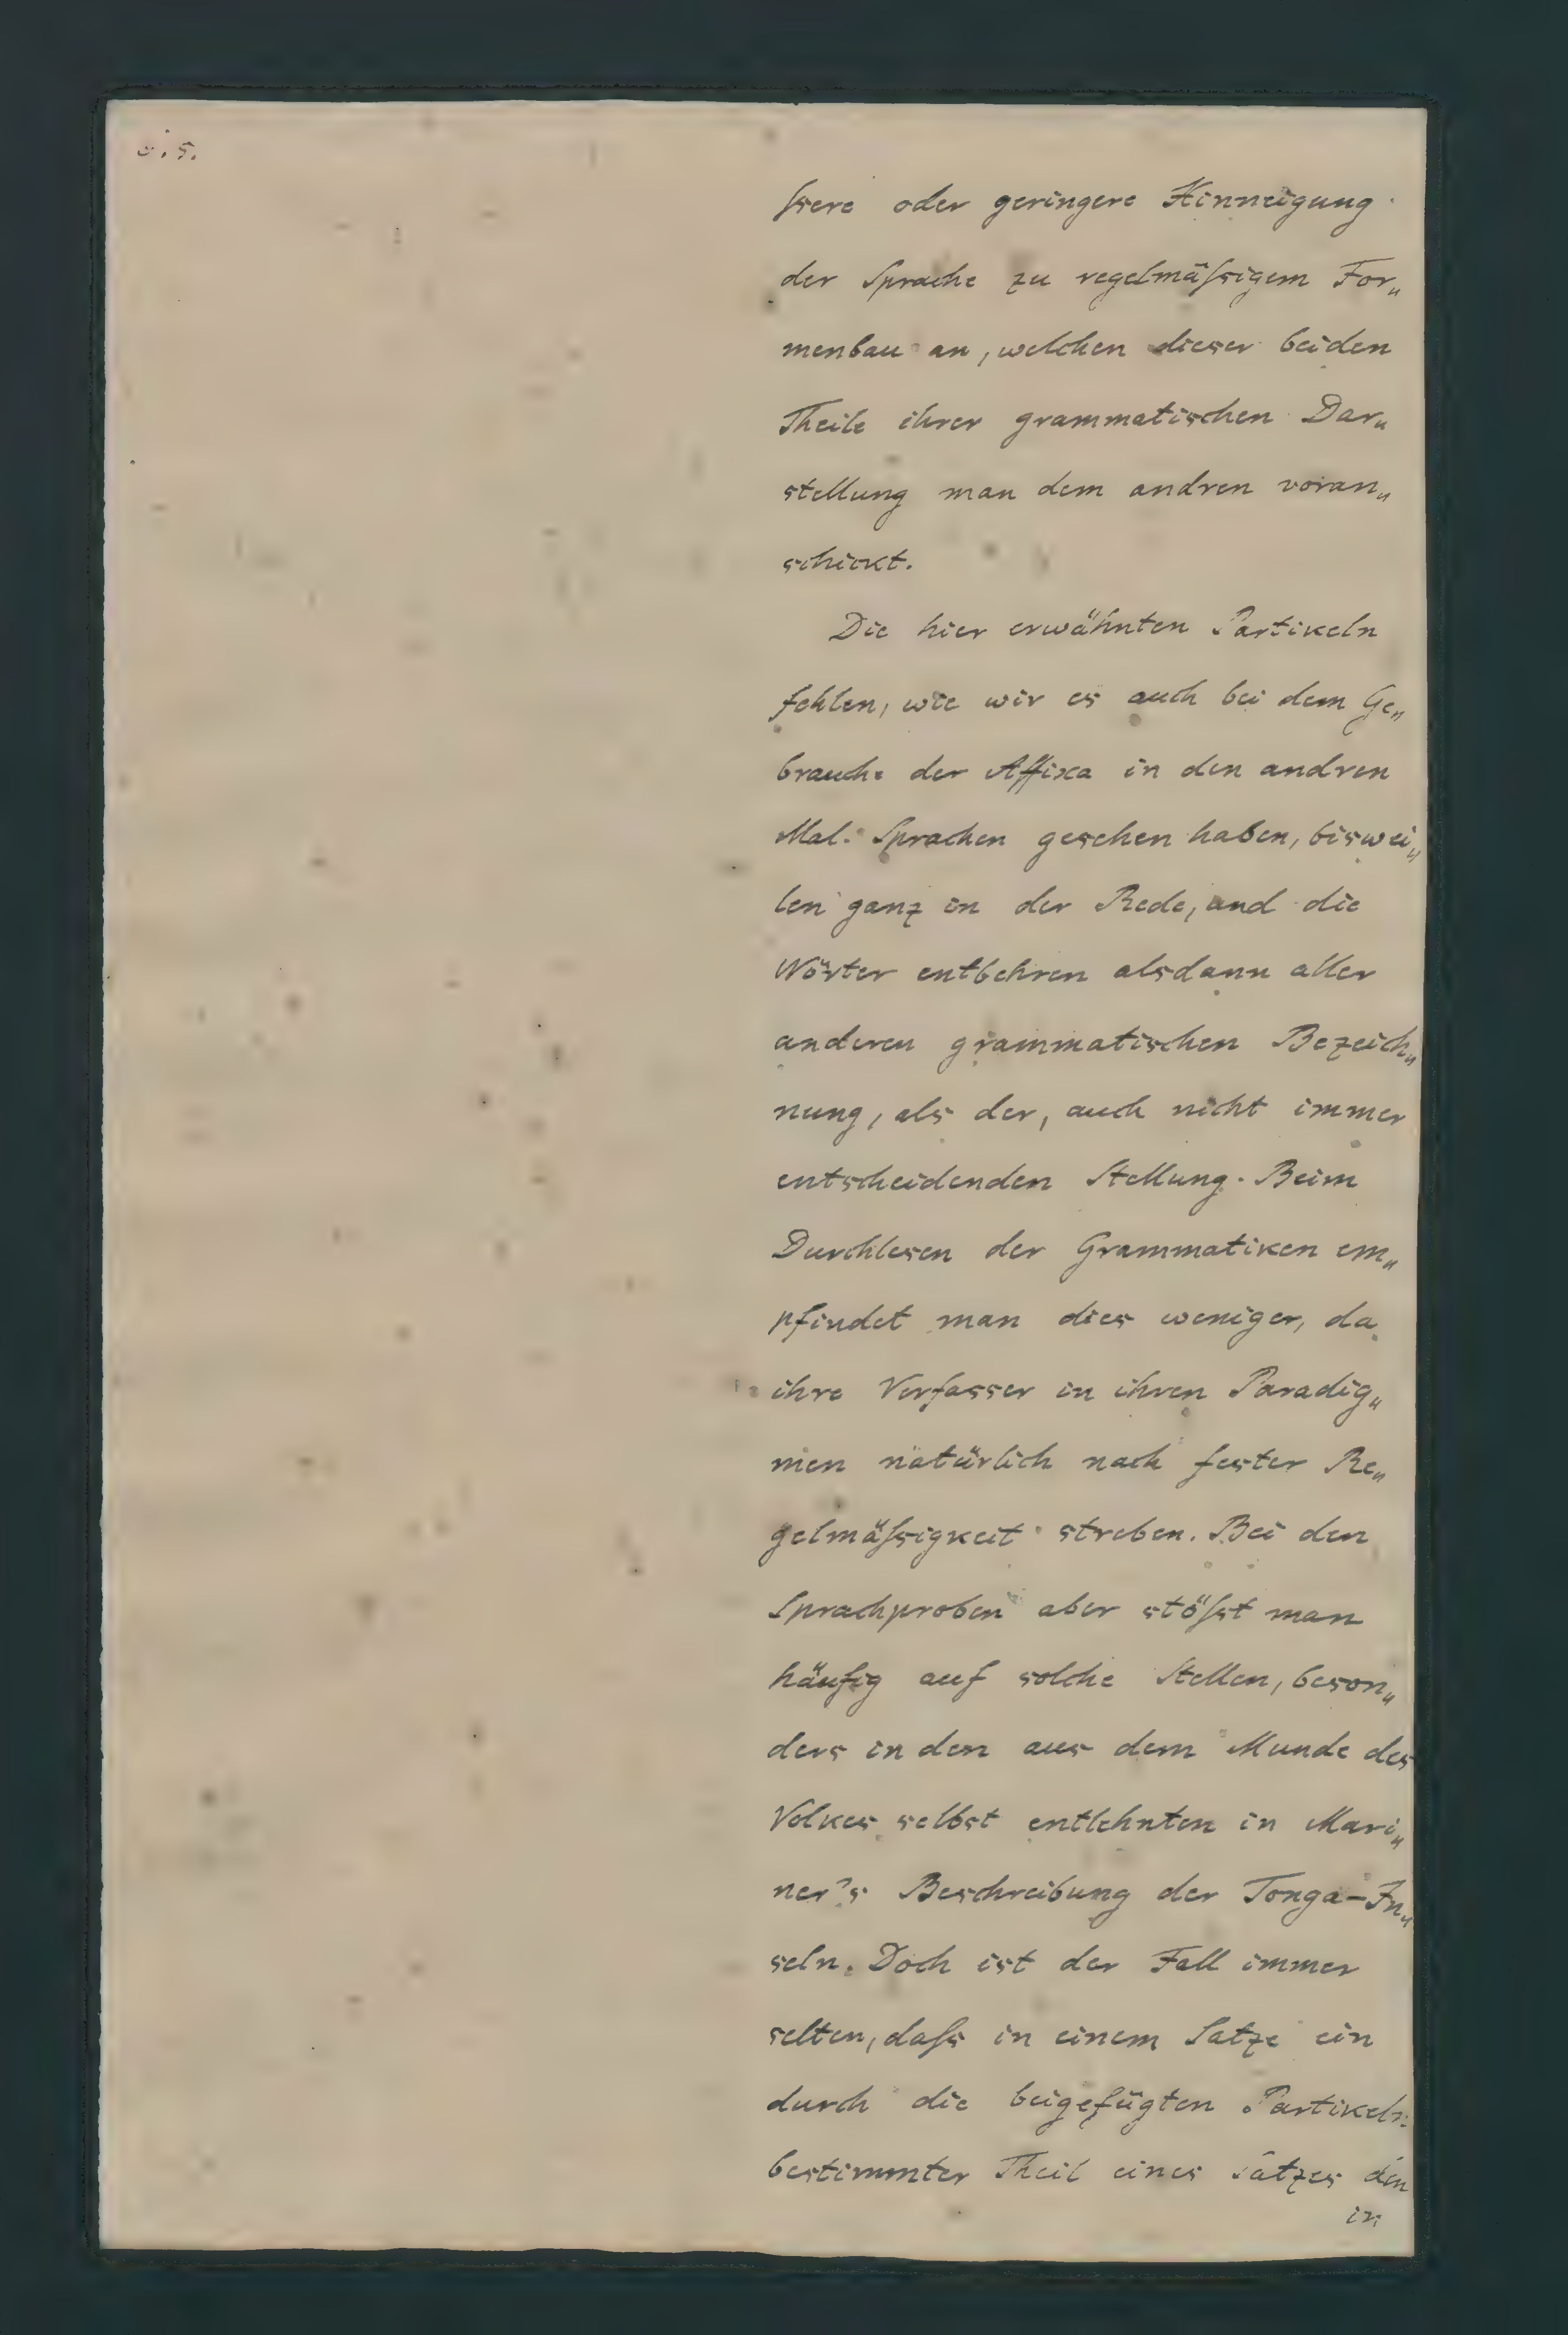 ſsere oder geringere Hinneigung
der Sprache zu regelmäſsigem For„
menbau an, welchen dieser beiden
Theile ihrer grammatischen Dar„
stellung man dem andren voran„
schickt.
Die hier erwähnten Partikeln
fehlen, wie wir es auch bei dem Ge„
brauche der Affixa in den andren
Mal. Sprachen gesehen haben, biswei„
len ganz in der Rede, und die
Wörter entbehren alsdann aller
anderen grammatischen Bezeich„
nung, als der, auch nicht immer
entscheidenden Stellung. Beim
Durchlesen der Grammatiken em„
pfindet man dies weniger, da
ihre Verfasser in ihren Paradig„
men natürlich nach fester Re„
gelmäſsigkeit streben. Bei den
Sprachproben aber stöſst man
häufig auf solche Stellen, beson„
ders in den aus dem Munde des
Volkes selbst entlehnten in Mari„
ner's Beschreibung der Tonga-In„
seln. Doch ist der Fall immer
selten, daſs in einem Satze ein
durch die beigefügten Partikeln
bestimmter Theil eines Satzes den
in